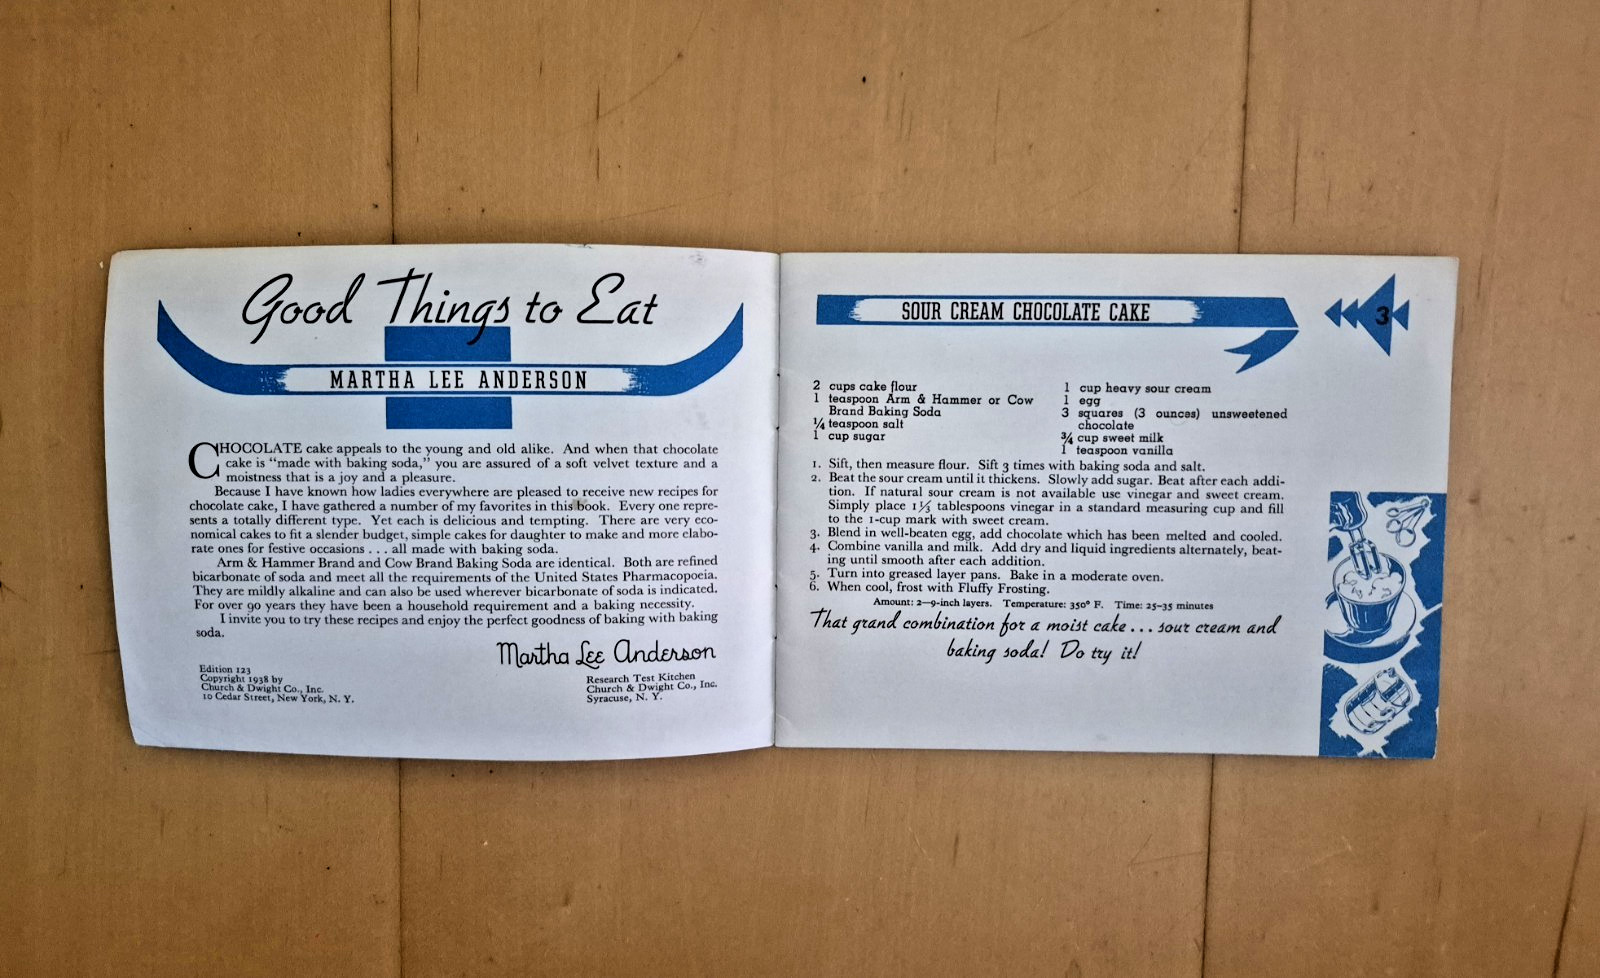 Good Things to Eat
MARTHA LEE ANDERSON
CHOCOLATE cake appeals to the young and old alike. And when that chocolate
cake is “made with baking soda,” you are assured of a soft velvet texture and a
moistness that is a joy and a pleasure.
Because I have known how ladies everywhere are pleased to receive new recipes for
chocolate cake, I have gathered a number of my favorites in this book. Every one repre-
sents a totally different type. Yet each is delicious and tempting. There are very eco-
nomical cakes to fit a slender budget, simple cakes for daughter to make and more elabo-
rate ones for festive occasions . . . all made with baking soda.
Arm & Hammer Brand and Cow Brand Baking Soda are identical. Both are refined
bicarbonate of soda and meet all the requirements of the United States Pharmacopoeia.
They are mildly alkaline and can also be used wherever bicarbonate of soda is indicated.
For over 90 years they have been a household requirement and a baking necessity.
I invite you to try these recipes and enjoy the perfect goodness of baking with baking
soda.
Martha Lee Anderson
Edition 123
Copyright 1938 by
Church & Dwight Co., Inc.
10 Cedar Street, New York, N. Y.
Research Test Kitchen
Church & Dwight Co., Inc.
Syracuse, N. Y.
SOUR CREAM CHOCOLATE CAKE
3
2 cups cake flour
1 teaspoon Arm & Hammer or Cow
Brand Baking Soda
¼ teaspoon salt
1 cup sugar
1 cup heavy sour cream
1 egg
3 squares (3 ounces) unsweetened
chocolate
¾ cup sweet milk
1 teaspoon vanilla
1. Sift, then measure flour. Sift 3 times with baking soda and salt.
2. Beat the sour cream until it thickens. Slowly add sugar. Beat after each addi-
tion. If natural sour cream is not available use vinegar and sweet cream.
Simply place 1⅓ tablespoons vinegar in a standard measuring cup and fill
to the 1-cup mark with sweet cream.
3. Blend in well-beaten egg, add chocolate which has been melted and cooled.
4. Combine vanilla and milk. Add dry and liquid ingredients alternately, beat-
ing until smooth after each addition.
5. Turn into greased layer pans. Bake in a moderate oven.
6. When cool, frost with Fluffy Frosting.
Amount: 2—9-inch layers. Temperature: 350° F. Time: 25-35 minutes
That grand combination for a moist cake . . . sour cream and
baking soda! Do try it!